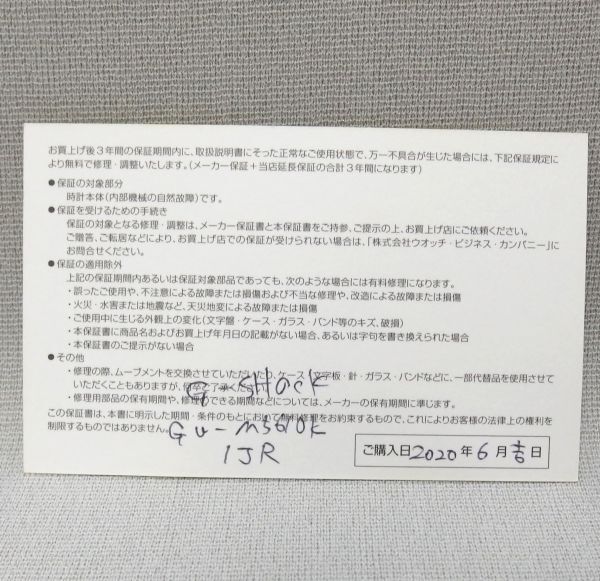 お買上げ後3年間の保証期間内に、取扱説明書にそった正常なご使用状態で、万一不具合が生じた場合には、下記保証規定に
より無料で修理・調整いたします。(メーカー保証+当店延長保証の合計3年間になります)
●保証の対象部分
時計本体(内部機械の自然故障)です。
●保証を受けるための手続き
保証の対象となる修理・調整は、メーカー保証書と本保証書をご持参、ご提示の上、お買上げ店にご依頼ください。
ご贈答、ご転居などにより、お買上げ店での保証が受けられない場合は、「株式会社ウオッチ・ビジネス・カンパニー」に
お問合せください。
●保証の適用除外
上記の保証期間内あるいは保証対象部品であっても、次のような場合には有料修理になります。
・誤ったご使用や、不注意による故障または損傷および不当な修理や、改造による故障または損傷
・火災・水害または地震など、天災地変による故障または損傷
・ご使用中に生じる外観上の変化(文字盤・ケース・ガラス・バンド等のキズ、破損)
・本保証書に商品名およびお買上げ年月日の記載がない場合、あるいは字句を書き換えられた場合
・本保証書のご提示がない場合
●その他
・修理の際、ムーブメントを交換させていただいたり、ケース・文字板・針・ガラス・バンドなどに、一部代替品を使用させて
いただくこともありますが、何卒ご了承ください。
・修理用部品の保有期間や、修理できる期間などについては、メーカーの保有期間に準じます。
この保証書は、本書に明示した期間・条件のもとにおいて無料修理をお約束するもので、これによりお客様の法律上の権利を
制限するものではありません。
G-SHOCK
1JR
ご購入日2020年6月吉日